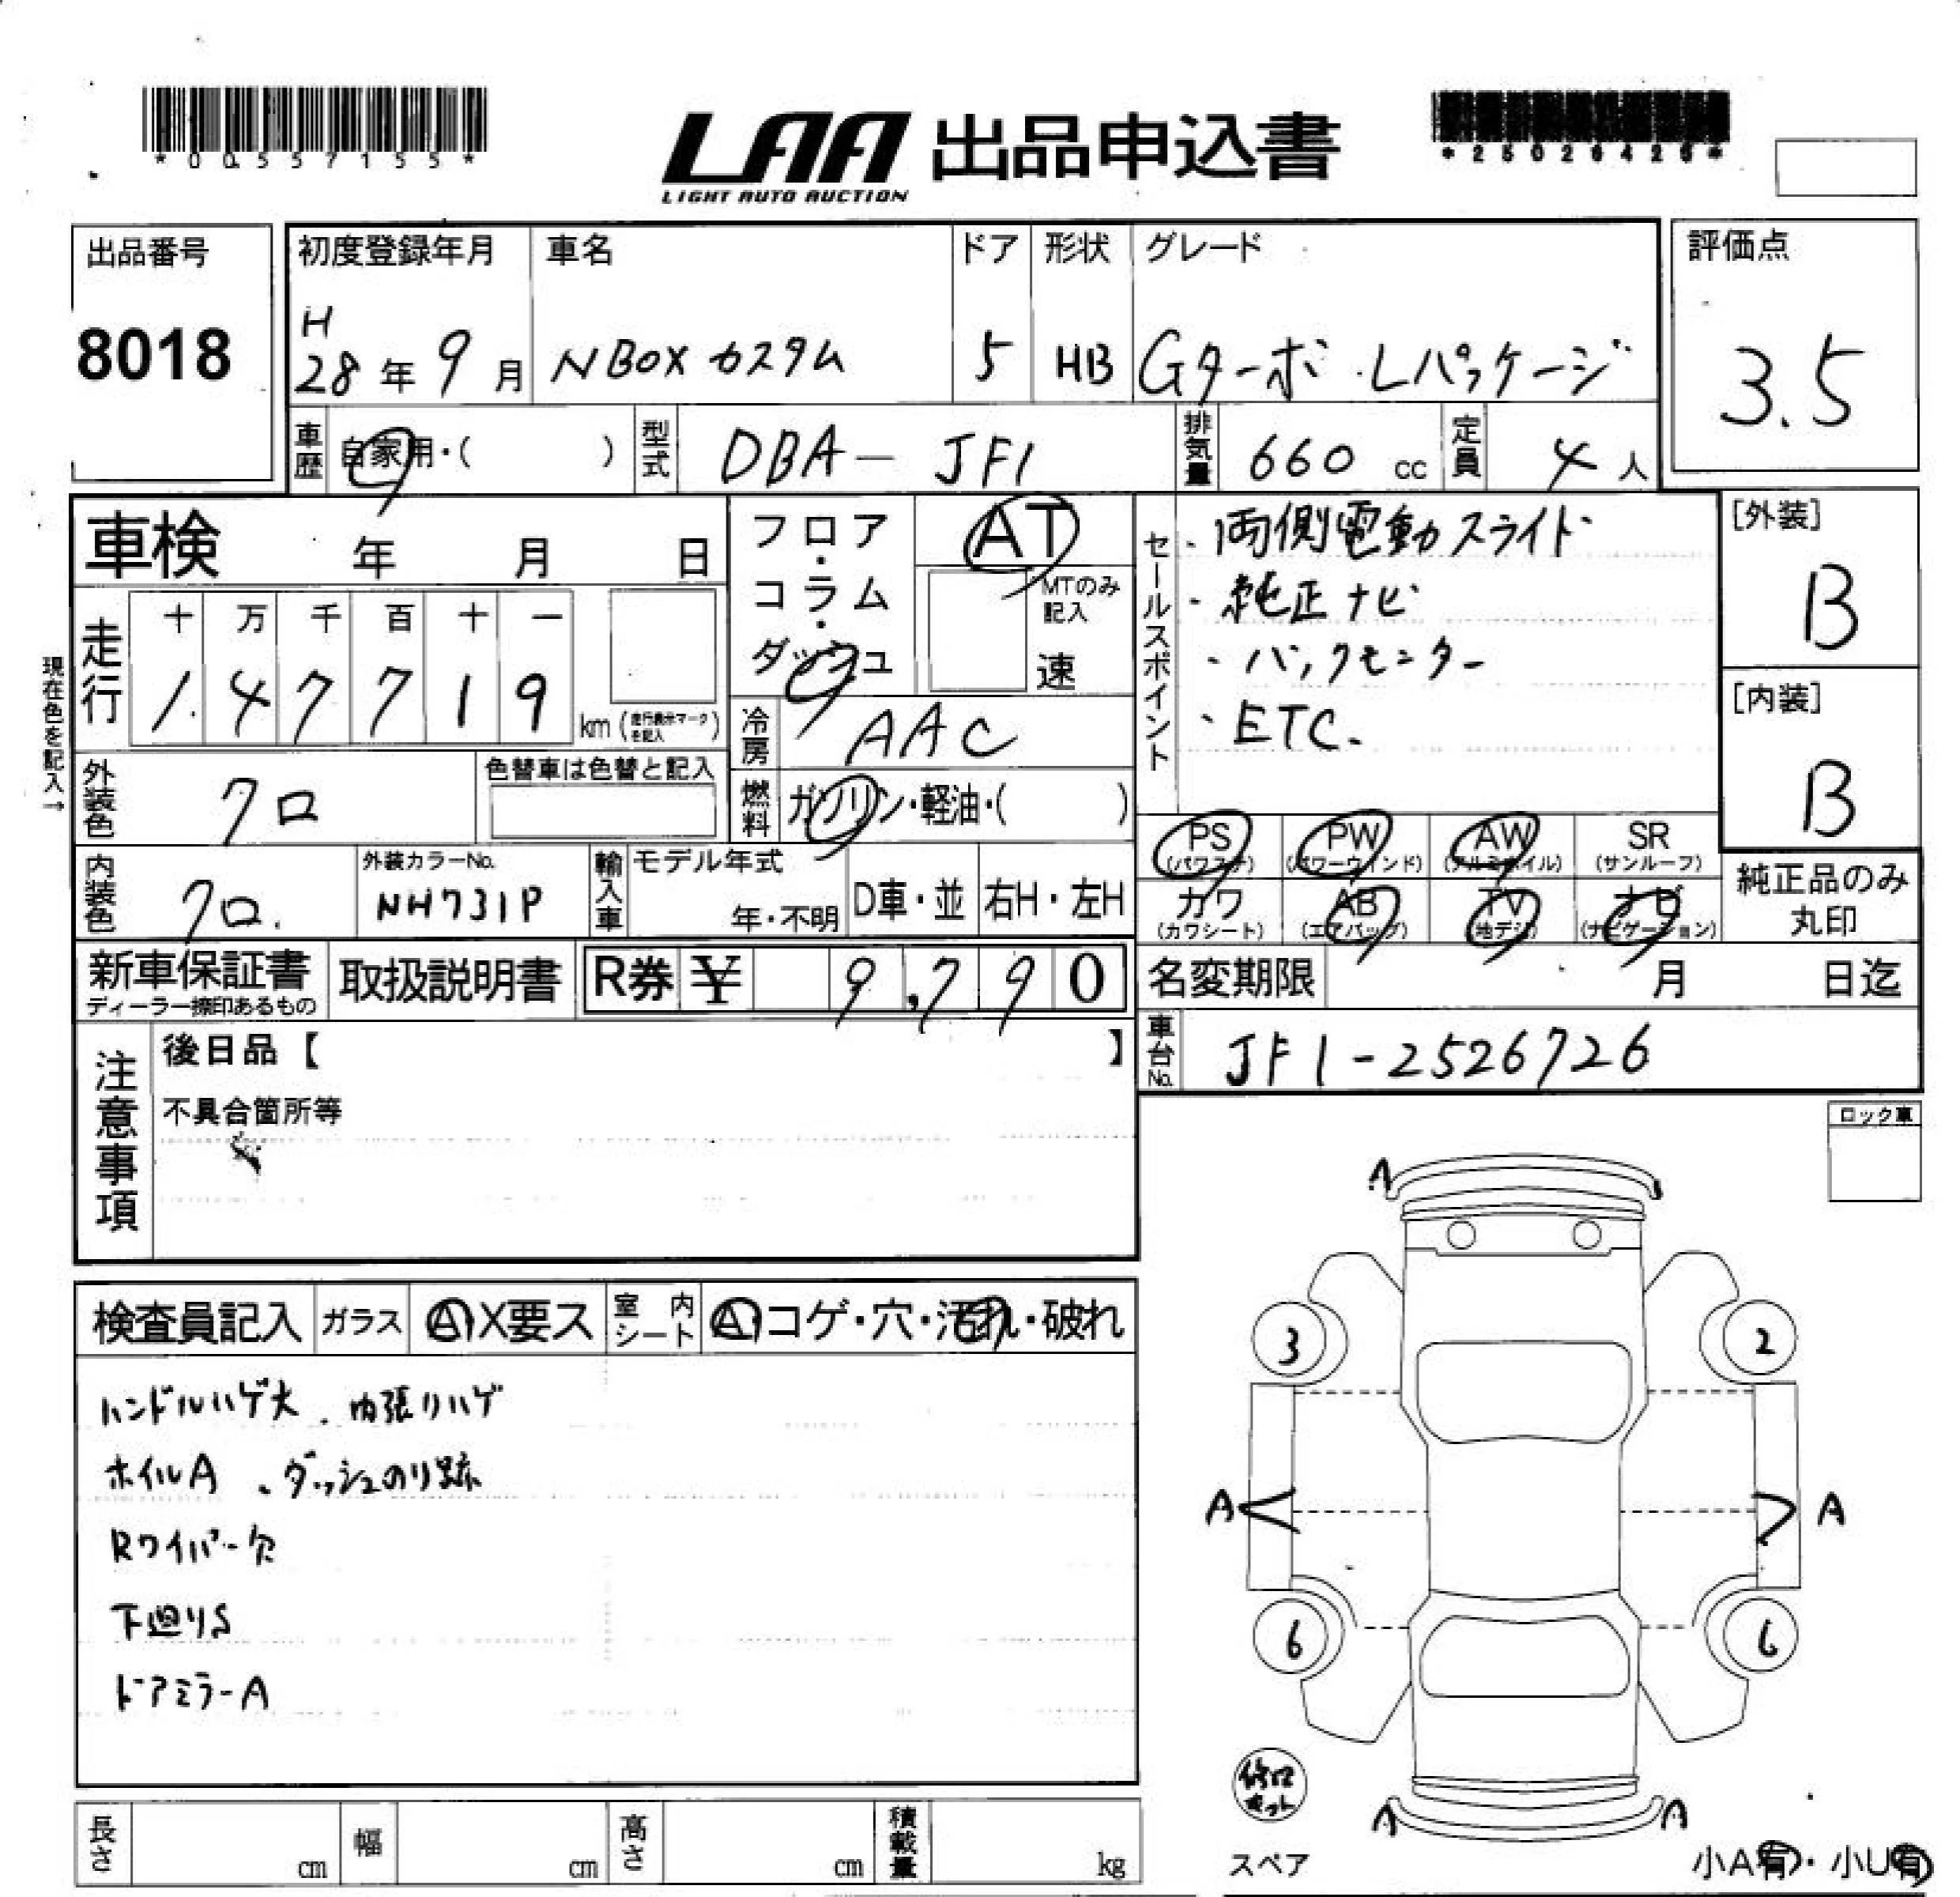 *00557155*
LAA 出品申込書
LIGHT AUTO AUCTION
*25026426*
出品番号
8018
初度登録年月
H
28年 9月
車名
NBOX カスタム
ドア
5
形状
HB
グレード
Gターボ・Lパッケージ
評価点
3.5
車歴
自家用・( )
型式
DBA- JF1
排気量
660 cc
定員
4人
車検 年 月 日
走行
十 万 千 百 十 一
1 4 7 7 1 9
km(走行表示マークを記入)
現在色を記入→
フロア・コラム・ダッシュ
AT
MTのみ記入
速
冷房
AAC
燃料
ガソリン・軽油・( )
外装色
クロ
色替車は色替と記入
内装色
クロ.
外装カラーNo.
NH731P
輸入車
モデル年式
年・不明
D車・並
右H・左H
セールスポイント
・両側電動スライド
・純正ナビ
・バックモニター
・ETC.
[外装]
B
[内装]
B
PS
(パワステ)
PW
(パワーウィンド)
AW
(アルミホイル)
SR
(サンルーフ)
カワ
(カワシート)
AB
(エアバッグ)
TV
(地デジ)
ナビ
(ナビゲーション)
純正品のみ
丸印
新車保証書
ディーラー捺印あるもの
取扱説明書
R券 ¥ 9,790
名変期限 月 日迄
車台No.
JF1-2526726
注意事項
後日品【 】
不具合箇所等
ロック車
検査員記入
ガラス
A X要ス
室内シート
A コゲ・穴・汚れ・破れ
ハンドルハゲ大 . 内張りハゲ
ホイルA 、ダッシュのり跡
Rワイパー欠
下廻りS
ドアミラーA
A
3
2
A
A
6
6
修理キット
A
A
スペア
小A有・小U有
長さ cm
幅 cm
高さ cm
積載量 kg